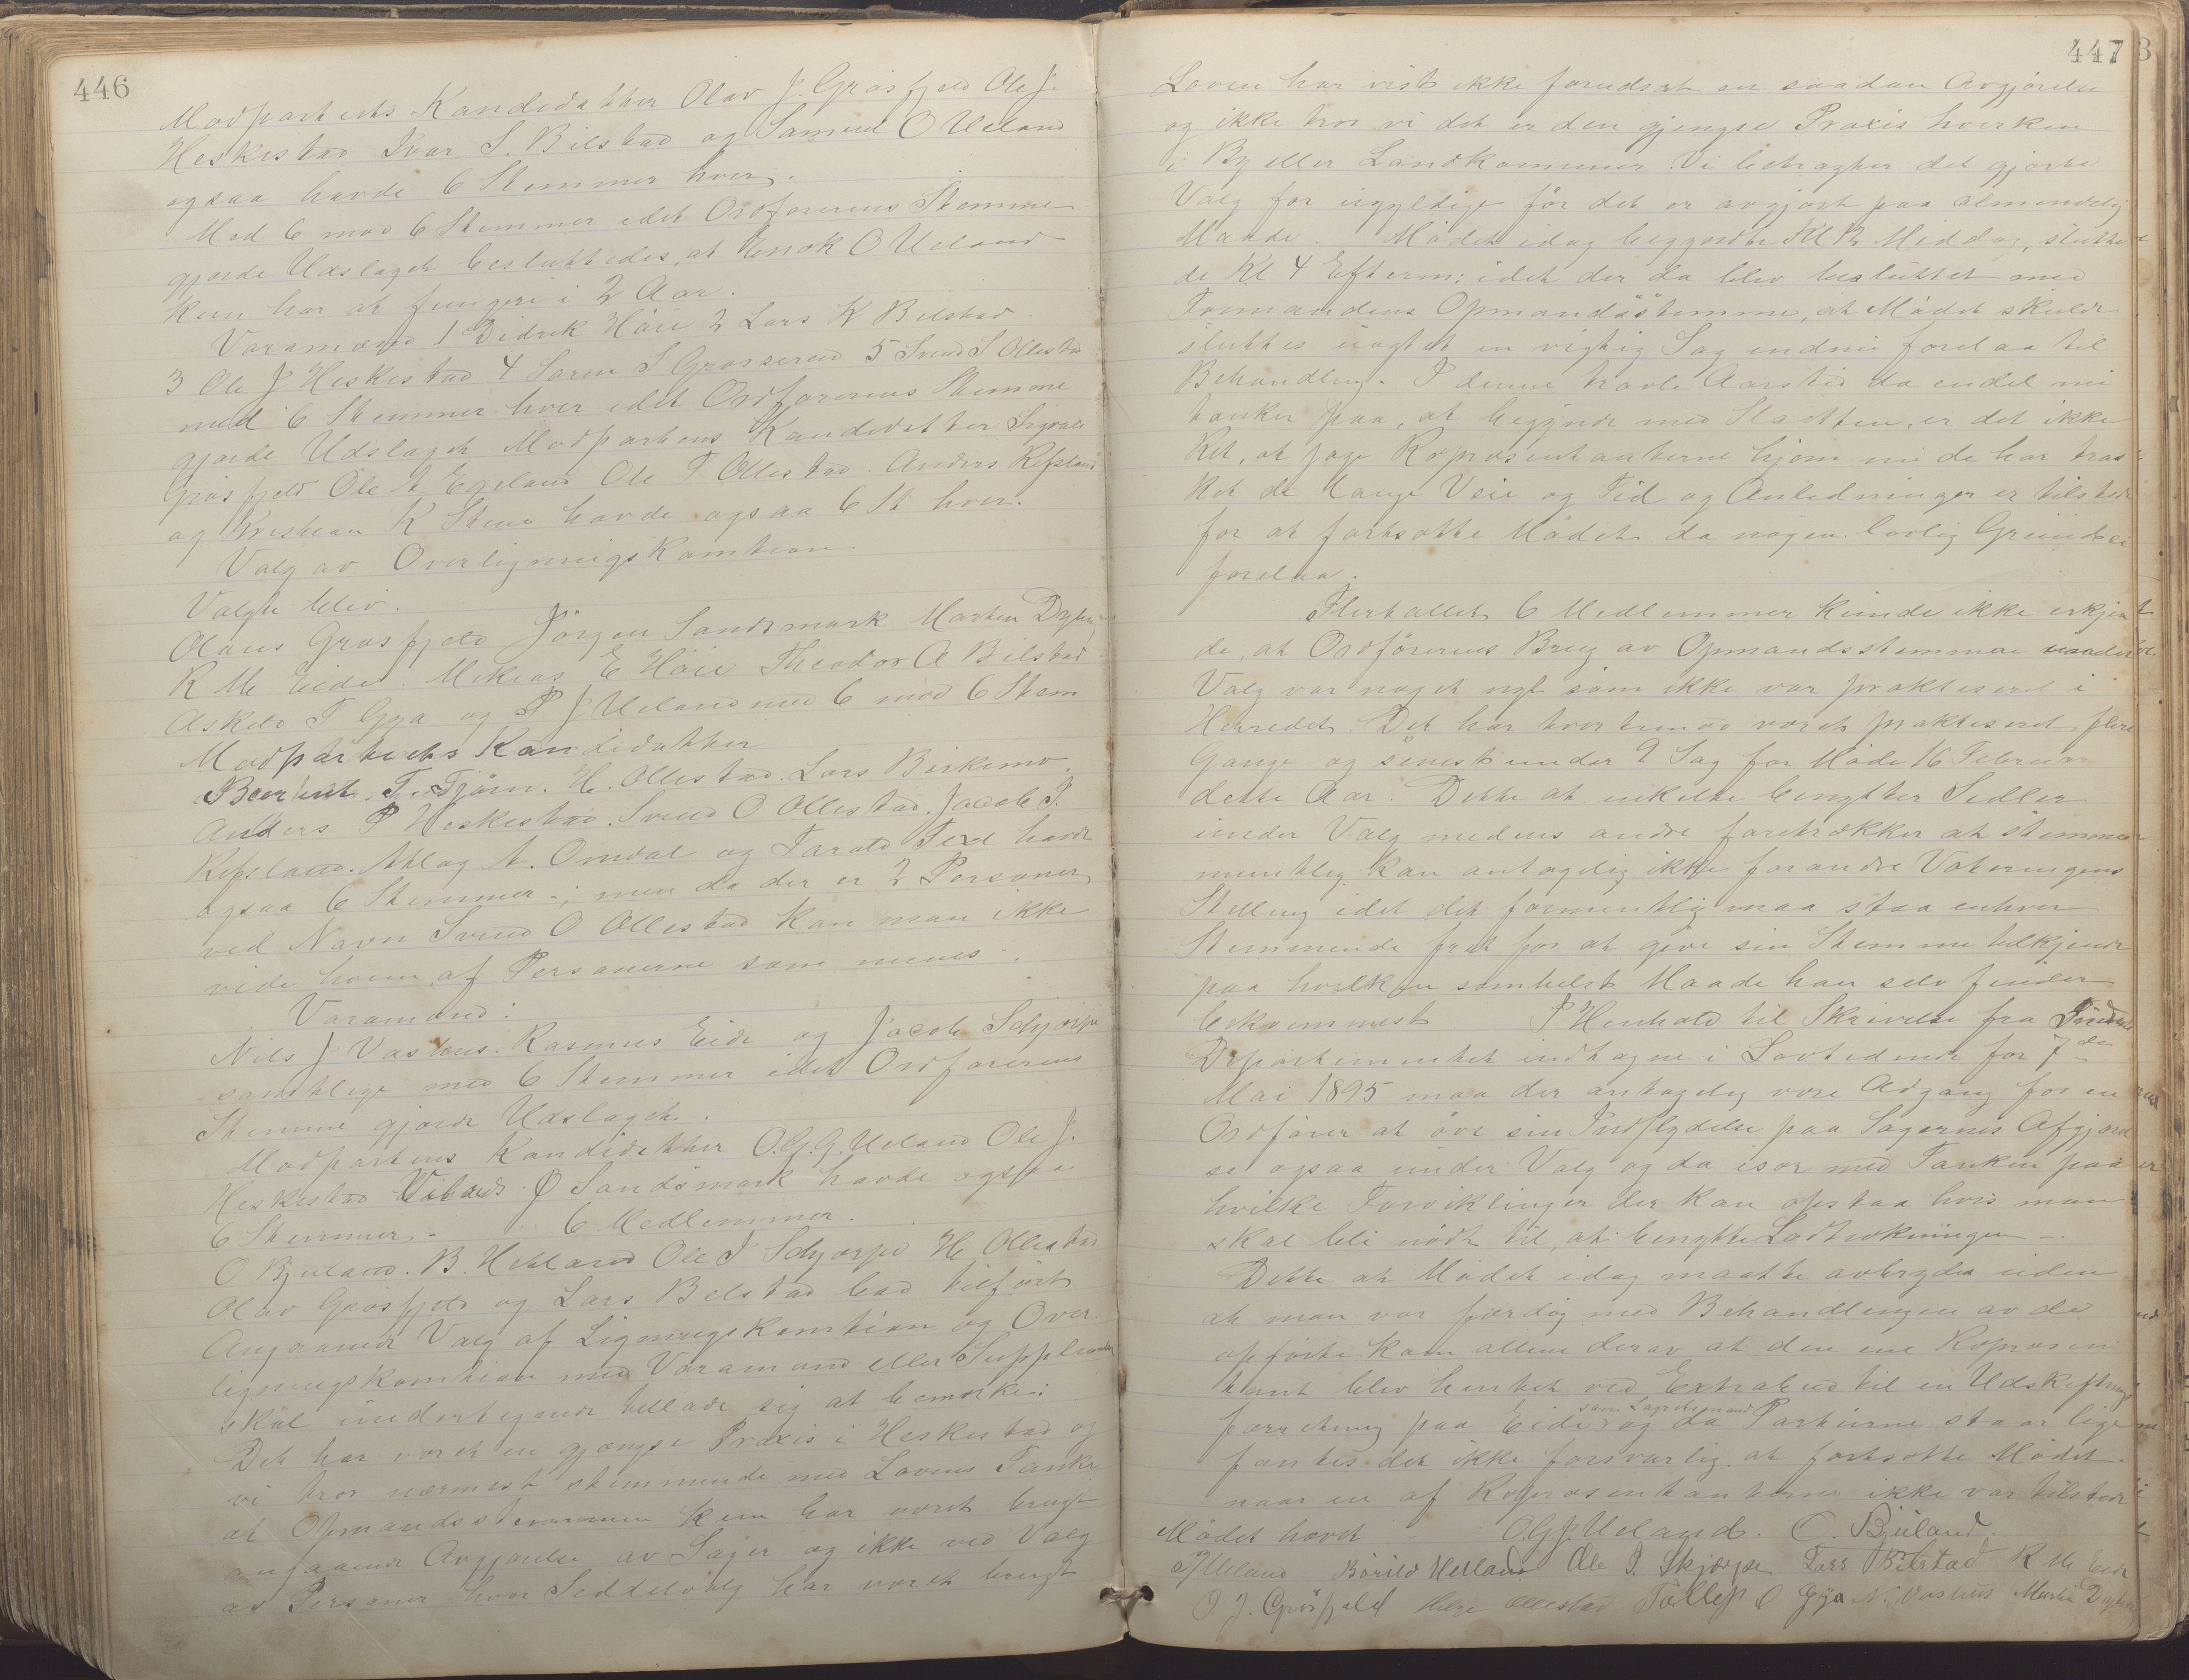 446
Modpartiets Kandidatter Olav J. Grøsfjeld Ole J.
Heskestad Ivar S. Bilstad og Samuel O Ueland
ogsaa havde 6 Stemmer hver.
Med 6 mod 6 Stemmer idet Ordførerens Stemme
gjorde Udslaget besluttedes, at Enok O Ueland
kun har at fungere i 2 Aar.
Varamænd 1 Didrik Höie 2 Lars K Bilstad
3 Ole J Heskestad 4 Søren S Grøsereid 5 Svend S Ollestad
med 6 Stemmer hver idet Ordførerens Stemme
gjorde Udslaget Modpartiens Kandidatter Sigvald
Grøsfjeld Ole A. Egeland Ole T Ollestad. Anders Refsland
og Kristian K Stene havde ogsaa 6 St hver.
Valg av Overligningskomtion
Valgte blev.
Olaus Grøsfjeld Jörgen Sandsmark Martin
R M Eide. Mikias E Höie Theodor A Bilstad
Askild T Gya og P J Ueland med 6 mod 6 Stem
Modpartiets Kandidatter
Berent T. Tjörn. H. Ollestad. Lars Birkemo.
Anders P Heskestad. Svend O Ollestad. Jacob P.
Refsland. Atlag A. Omdal og Tarald havde
ogsaa 6 Stemmer -; men da der er 2 Personer
ved Navn Svend O Ollestad kan man ikke
vide hvem af Personerne som menes.
Varamænd:
Nils J Vashus. Rasmus Eide og Jacob Schjerpe
samtlige med 6 Stemmer idet Ordførerens
Stemme gjorde Udslaget.
Modpartiens Kandidatter O.G.J. Ueland Ole J.
Heskestad O Sandsmark havde ogsaa
6 Stemmer - 6 Medlemmer.
O Bjuland. B. Hetland Ole I Schjærpe H Ollestad
Olav Grøsfjeld og Lars Bilstad bad tilført
Angaaende Valg af Ligningskomtion og Over-
ligningskomtion med Varamænd eller Supplianter
skal undertegnede tillade sig at bemærke:
Det har været en gjængse Praxis i Heskestad og
vi tror nærmest stemmende med Lovens Tanke
at Opmandsstemmen kun har været brugt
angaaende Avgjørelse av Sager og ikke ved Valg
av Personer hvor Seddelvalg har været brugt
447
Loven har vist ikke forudsat en saadan Avgjørelse
og ikke tror vi det er den gjengse Praxis hverken
i By eller Landkommuner. Vi betragter det gjorte
Valg for ugyldige för det er avgjort paa almindelig
Maade. Mödet idag begyndte Kl 12 Middag, slutte
de Kl 4 Efterm: idet der da blev besluttet med
Formandens Opmandsstemme, at Mödet skulde
sluttes uagtet en vigtig Sag endnu forelaa til
Behandling. I denne travle Aarstid da endel nu
tænker paa, at begynde med Slaatten, er det ikke
Ret, at jage Repræsentanterne hjem nu de har træk
ket de lange Veie og Tid og Anledninger er tilstede
for at fortsætte Mödet da nogen lovlig Grund ei
forelaa.
Flertallet 6 Medlemmer kunde ikke erkjen
de, at Ordförerens Brug av Opmandsstemme under
Valg var noget nyt som ikke var praktiseret i
Herredet. Det har tvertimod været praktiseret flere
Gange og senest under 2 Sag for Möde 16 Februar
dette Aar. Dette at enkelte benytter Sedler
under Valg medens andre foretrækker at stemme
mundtlig kan antagelig ikke forandre Voteringens
Stilling idet det formentlig maa staa enhver
Stemmende frit for at give sin Stemme tilkjende
paa hvilken somhelst Maade han selv finder
bekvemmest I Henhold til Skrivelse fra Indre
Departementet indtagne i Lovtidende for 7de
Mai 1895 maa der antagelig være Adgang for en
Ordfører at öve sin Indflydelse paa Sagernes Afgjørel
se ogsaa under Valg og da især med Tanken paa
hvilke Forviklinger der kan opstaa hvis man
skal bli nödt til, at benytte Lodtrækningen -.
Dette at Mödet idag maatte avbrydes uden
at man var færdig med Behandlingen av de
opförte kom allene derav at den ene Repræsen
tant blev hentet ved Extrabud til en Udskiftnings
forretning paa Eide som Lagrettesmand og da Partierne staar lige
fantes det ikke forsvarlig at fortsætte Mödet
naar en af Repræsentanterne ikke var tilstede
Mödet hævet O.G.J. Ueland. O. Bjuland.
Ueland Börild Hetland Ole I. Skjærpe Lars Bilstad R M Eide
O. J. Grösfjeld Helge Ollestad Tollef O Gya N. Vashus Martin